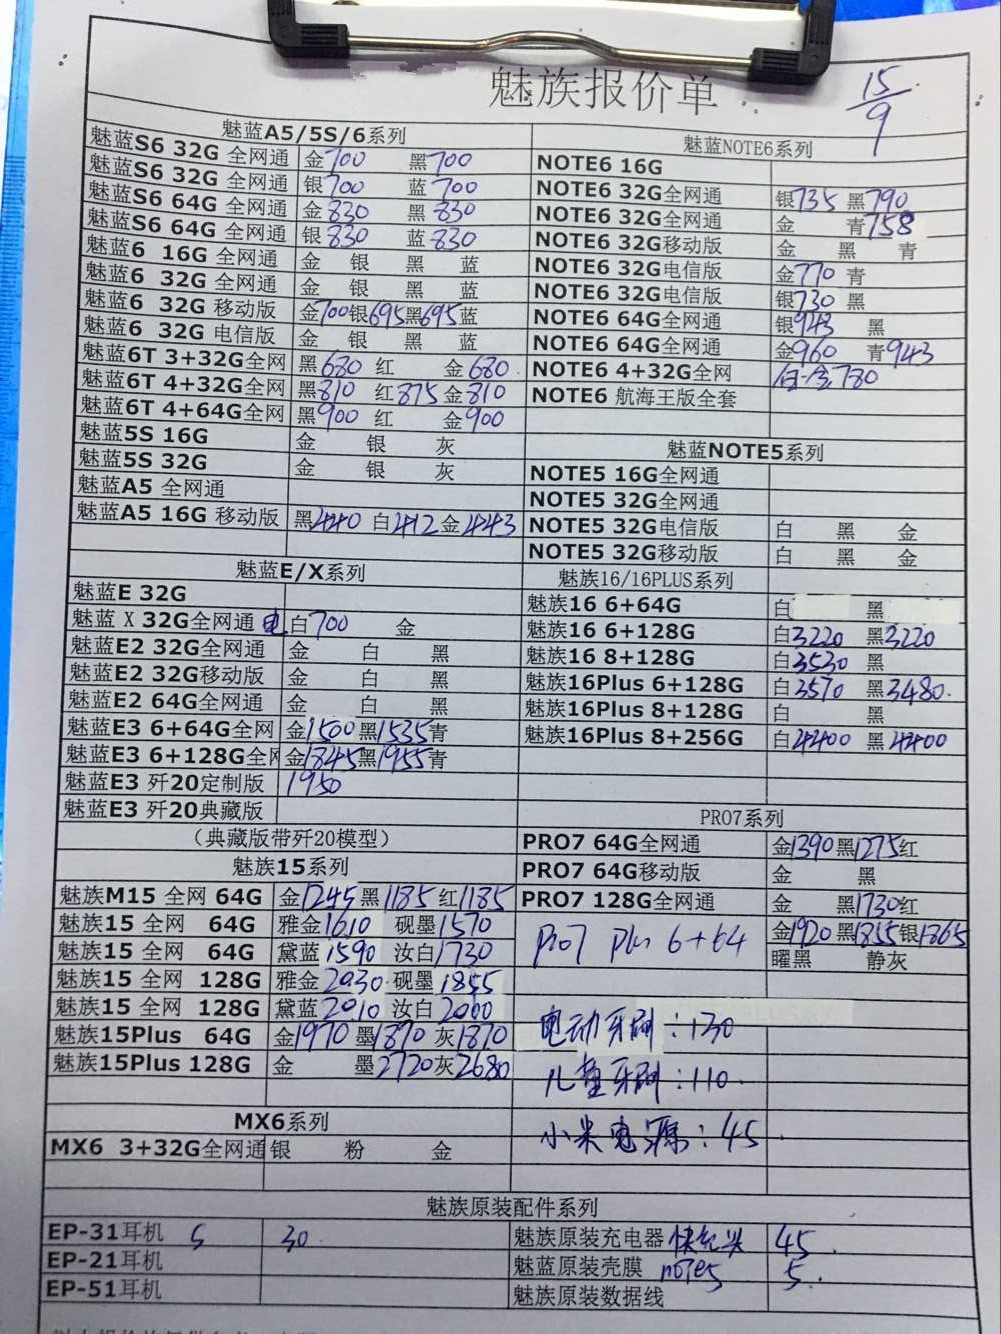 魅族报价单
15/9
魅蓝A5/5S/6系列
魅蓝S6 32G 全网通 金700 黑700
魅蓝S6 32G 全网通 银700 蓝700
魅蓝S6 64G 全网通 金830 黑830
魅蓝S6 64G 全网通 银830 蓝830
魅蓝6 16G 全网通 金 银 黑 蓝
魅蓝6 32G 全网通 金 银 黑 蓝
魅蓝6 32G 移动版 金700银695黑695蓝
魅蓝6 32G 电信版 金 银 黑 蓝
魅蓝6T 3+32G全网 黑680 红 金680
魅蓝6T 4+32G全网 黑810 红875 金810
魅蓝6T 4+64G全网 黑900 红 金900
魅蓝5S 16G 金 银 灰
魅蓝5S 32G 金 银 灰
魅蓝A5 全网通
魅蓝A5 16G 移动版 黑440 白412 金443
魅蓝E/X系列
魅蓝E 32G
魅蓝 X 32G全网通 电 白700 金
魅蓝E2 32G全网通 金 白 黑
魅蓝E2 32G移动版 金 白 黑
魅蓝E2 64G全网通 金 白 黑
魅蓝E3 6+64G全网 金1500黑1535青
魅蓝E3 6+128G全网 金1845黑1955青
魅蓝E3 歼20定制版 1950
魅蓝E3 歼20典藏版
（典藏版带歼20模型）
魅族15系列
魅族M15 全网 64G 金1245 黑1185 红1185
魅族15 全网 64G 雅金1610 砚墨1570
魅族15 全网 64G 黛蓝1590 汝白1730
魅族15 全网 128G 雅金2030 砚墨1855
魅族15 全网 128G 黛蓝2010 汝白2000
魅族15Plus 64G 金1970 墨1870 灰1870
魅族15Plus 128G 金 墨2720灰2680
MX6系列
MX6 3+32G全网通 银 粉 金
魅蓝NOTE6系列
NOTE6 16G
NOTE6 32G全网通 银735 黑790
NOTE6 32G全网通 金 青758
NOTE6 32G移动版 金 黑 青
NOTE6 32G电信版 金770 青
NOTE6 32G电信版 银730 黑
NOTE6 64G全网通 银943 黑
NOTE6 64G全网通 金960 青943
NOTE6 4+32G全网 白.金780
NOTE6 航海王版全套
魅蓝NOTE5系列
NOTE5 16G全网通
NOTE5 32G全网通
NOTE5 32G电信版 白 黑 金
NOTE5 32G移动版 白 黑 金
魅族16/16PLUS系列
魅族16 6+64G 白 黑
魅族16 6+128G 白3220 黑3220
魅族16 8+128G 白3530 黑
魅族16Plus 6+128G 白3570 黑3480.
魅族16Plus 8+128G 白 黑
魅族16Plus 8+256G 白4400 黑4400
PRO7系列
PRO7 64G全网通 金1390黑1275红
PRO7 64G移动版 金 黑
PRO7 128G全网通 金 黑1730红
pro7 plus 6+64 金1920黑1855银1865
曜黑 静灰
电动牙刷：130
儿童牙刷：110.
小米电源：45
魅族原装配件系列
EP-31耳机 5 30
EP-21耳机
EP-51耳机
魅族原装充电器 快充头 45
魅蓝原装壳膜 note5 5.
魅族原装数据线